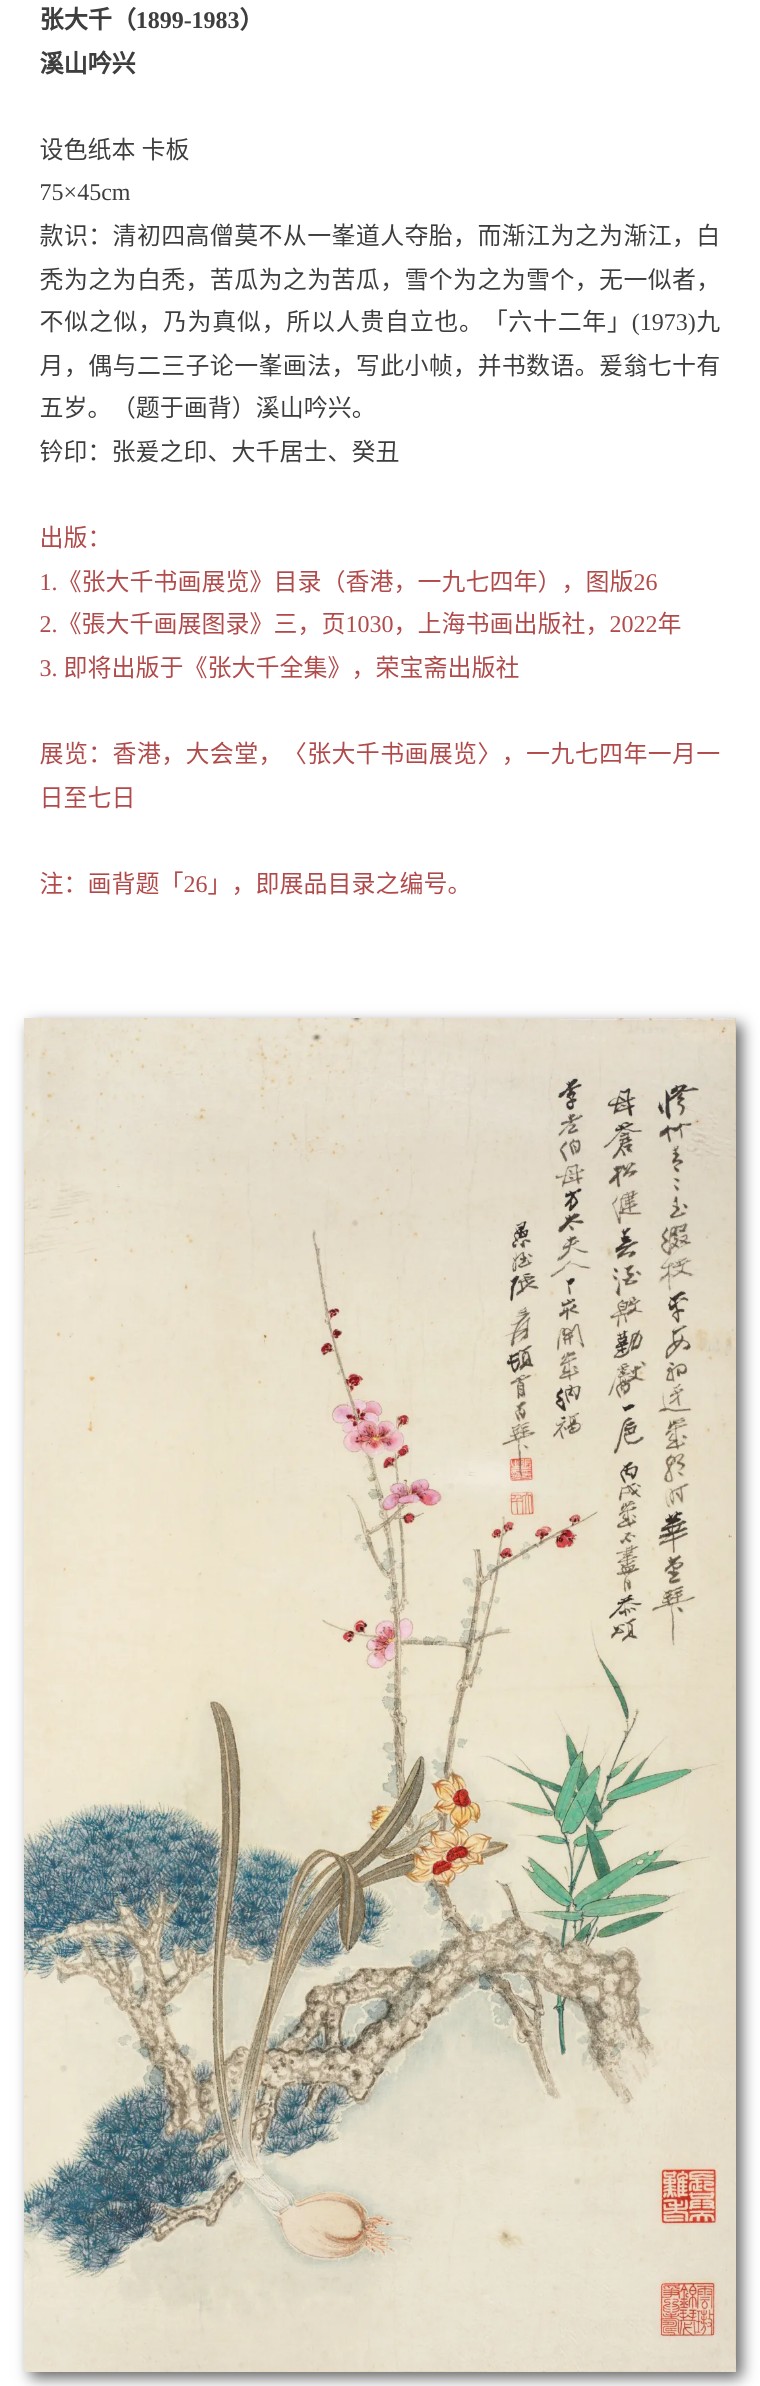 张大千（1899-1983）
溪山吟兴
设色纸本 卡板
75×45cm
款识：清初四高僧莫不从一峯道人夺胎，而渐江为之为渐江，白
秃为之为白秃，苦瓜为之为苦瓜，雪个为之为雪个，无一似者，
不似之似，乃为真似，所以人贵自立也。「六十二年」(1973)九
月，偶与二三子论一峯画法，写此小帧，并书数语。爰翁七十有
五岁。（题于画背）溪山吟兴。
钤印：张爰之印、大千居士、癸丑
出版：
1.《张大千书画展览》目录（香港，一九七四年），图版26
2.《張大千画展图录》三，页1030，上海书画出版社，2022年
3. 即将出版于《张大千全集》，荣宝斋出版社
展览：香港，大会堂，〈张大千书画展览〉，一九七四年一月一
日至七日
注：画背题「26」，即展品目录之编号。
修竹青〻玉缀枝平安初逐岁
母苍松健春酒殷勤献一卮 丙戌岁不尽日恭颂
李老伯母方太夫人 开岁纳福
愚侄张爰顿首百拜